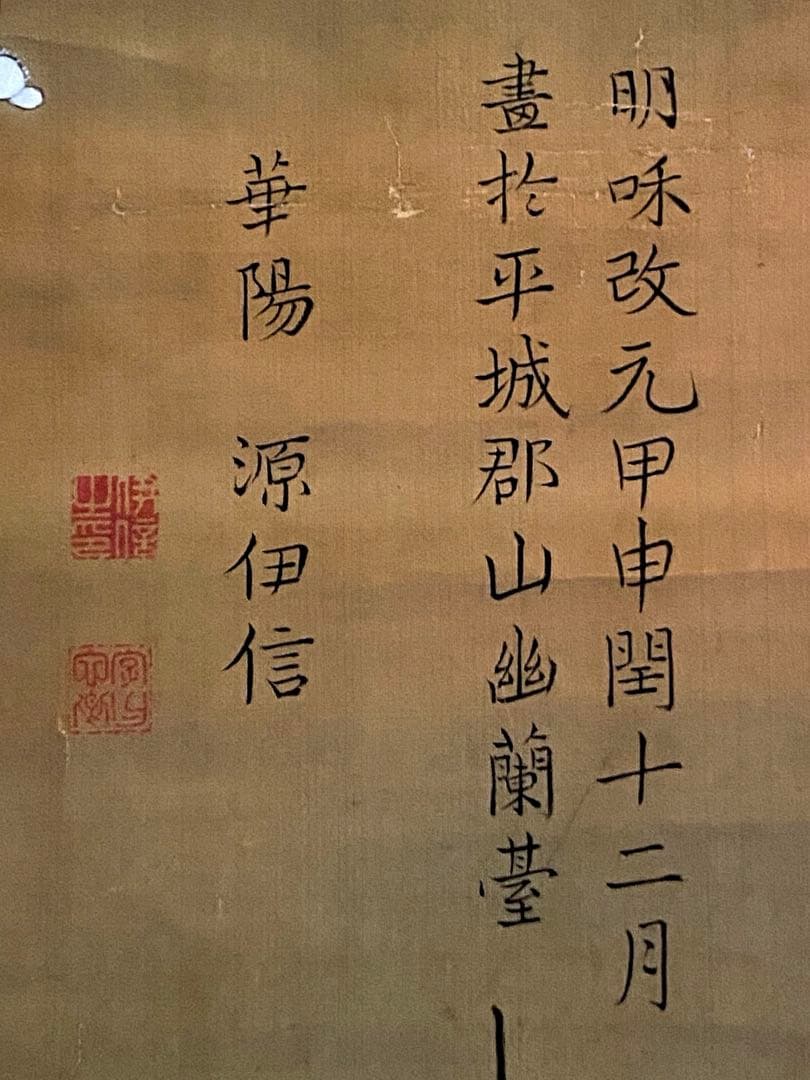 明咊改元甲申閏十二月
畫於平城郡山幽蘭臺
華陽 源伊信
伊信之印